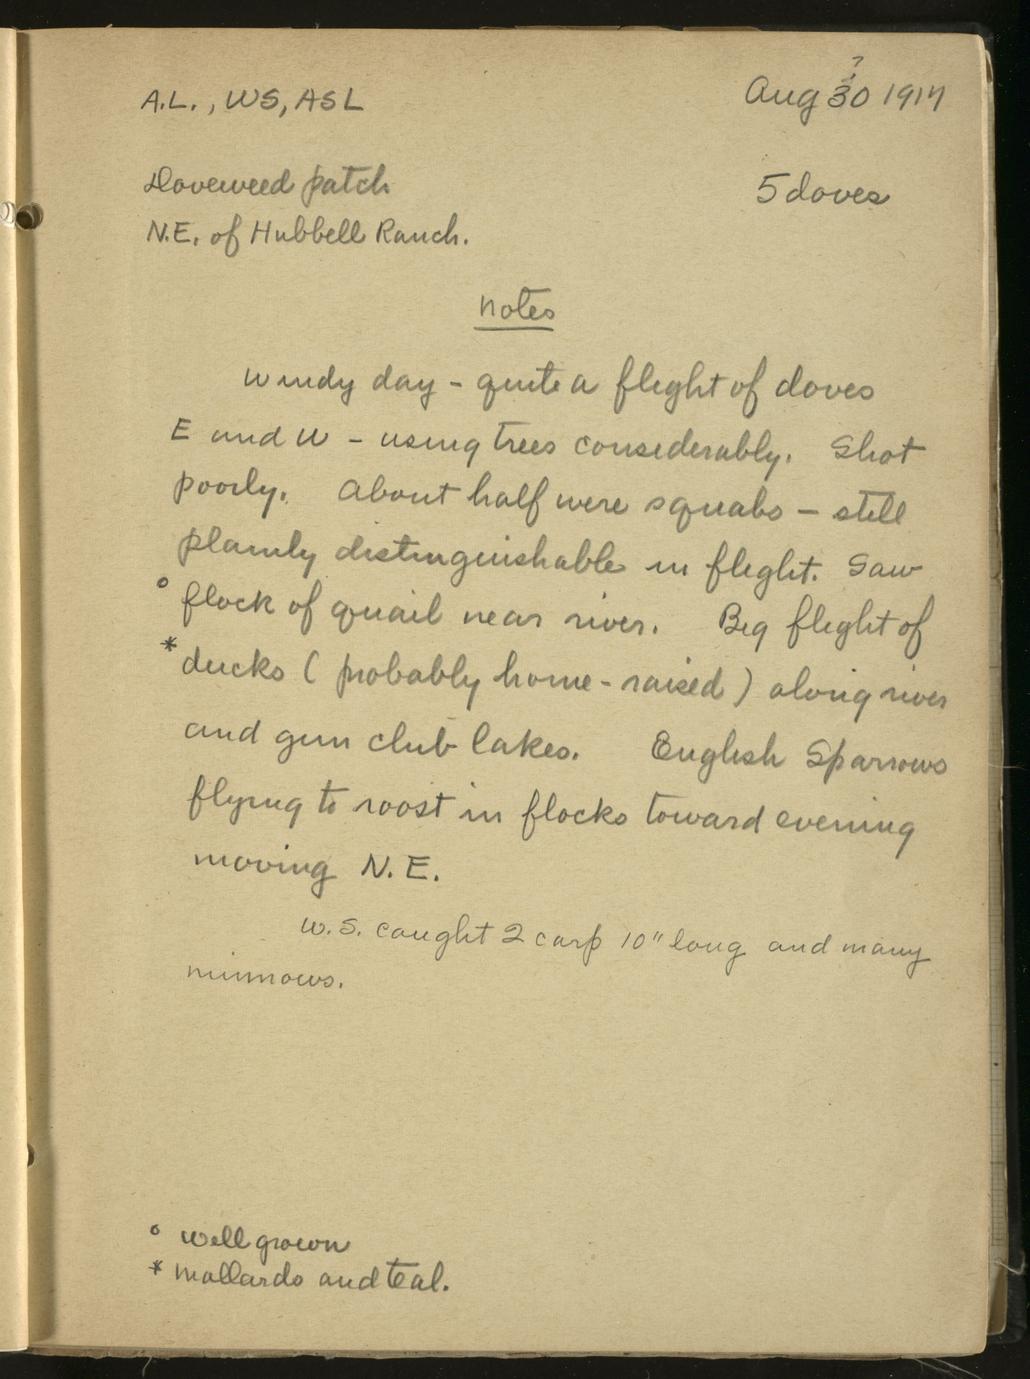 A.L., WS, ASL
Aug 30 1917
?
Doveweed patch
5 doves
N.E. of Hubbell Ranch.
Notes
Windy day - quite a flight of doves
E and W - using trees considerably. Shot
poorly. About half were squabs - still
plainly distinguishable in flight. Saw
° flock of quail near river. Big flight of
* ducks (probably home-raised) along river
and gun club lakes. English Sparrows
flying to roost in flocks toward evening
moving N.E.
W.S. caught 2 carp 10" long and many
minnows.
° well grown
* mallards and teal.